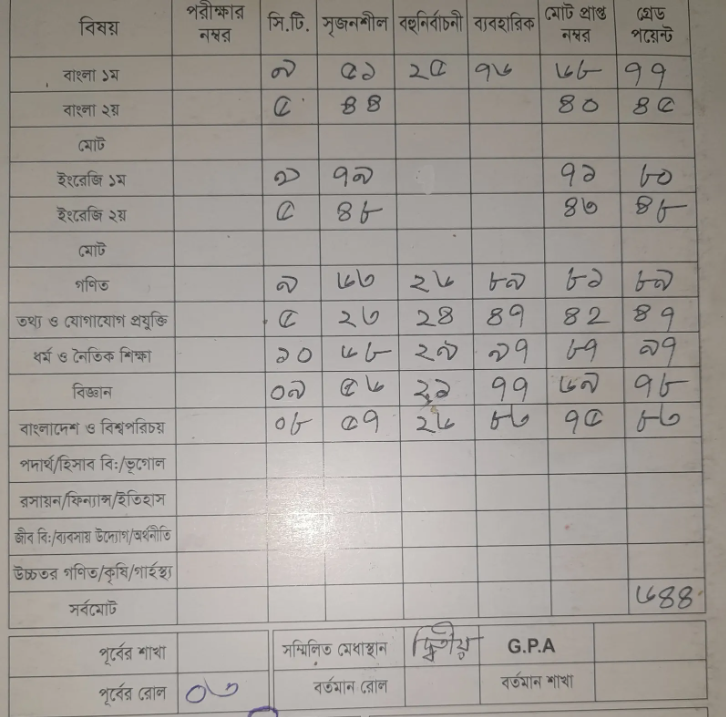 বিষয় পরীক্ষার নম্বর সি.টি. সৃজনশীল বহুনির্বাচনী ব্যবহারিক মোট প্রাপ্ত নম্বর গ্রেড পয়েন্ট
বাংলা ১ম ৯ ৫১ ২৫ ৭৬ ৬৮ ৭৭
বাংলা ২য় ৫ ৪৪ ৪০ ৪৫
মোট
ইংরেজি ১ম ৯ ৭৯ ৭১ ৮০
ইংরেজি ২য় ৫ ৪৮ ৪৩ ৪৮
মোট
গণিত ৯ ৬৩ ২৬ ৮৯ ৮১ ৮৯
তথ্য ও যোগাযোগ প্রযুক্তি ৫ ২৩ ২৪ ৪৭ ৪২ ৪৭
ধর্ম ও নৈতিক শিক্ষা ১০ ৬৮ ২৯ ৯৭ ৮৭ ৯৭
বিজ্ঞান ০৯ ৫৬ ২১ ৭৭ ৬৯ ৭৮
বাংলাদেশ ও বিশ্বপরিচয় ০৮ ৫৭ ২৬ ৮৩ ৭৫ ৮৩
পদার্থ/হিসাব বি:/ভূগোল
রসায়ন/ফিন্যান্স/ইতিহাস
জীব বি:/ব্যবসায় উদ্যোগ/অর্থনীতি
উচ্চতর গণিত/কৃষি/গার্হস্থ্য
সর্বমোট ৬৪৪
পূর্বের শাখা সম্মিলিত মেধাস্থান দ্বিতীয় G.P.A
পূর্বের রোল ০৩ বর্তমান রোল বর্তমান শাখা